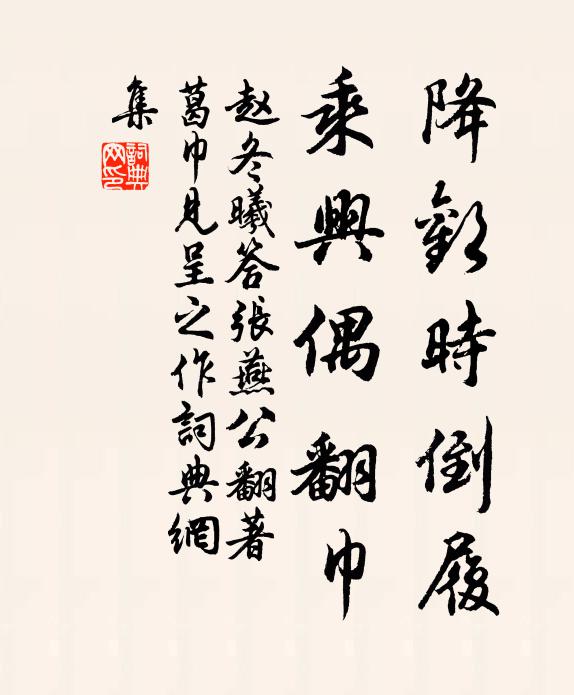 降歡時倒履
乘興偶翻巾
赵冬曦答張燕公翻著
葛巾見呈之作詞典網
集
詞典
网印